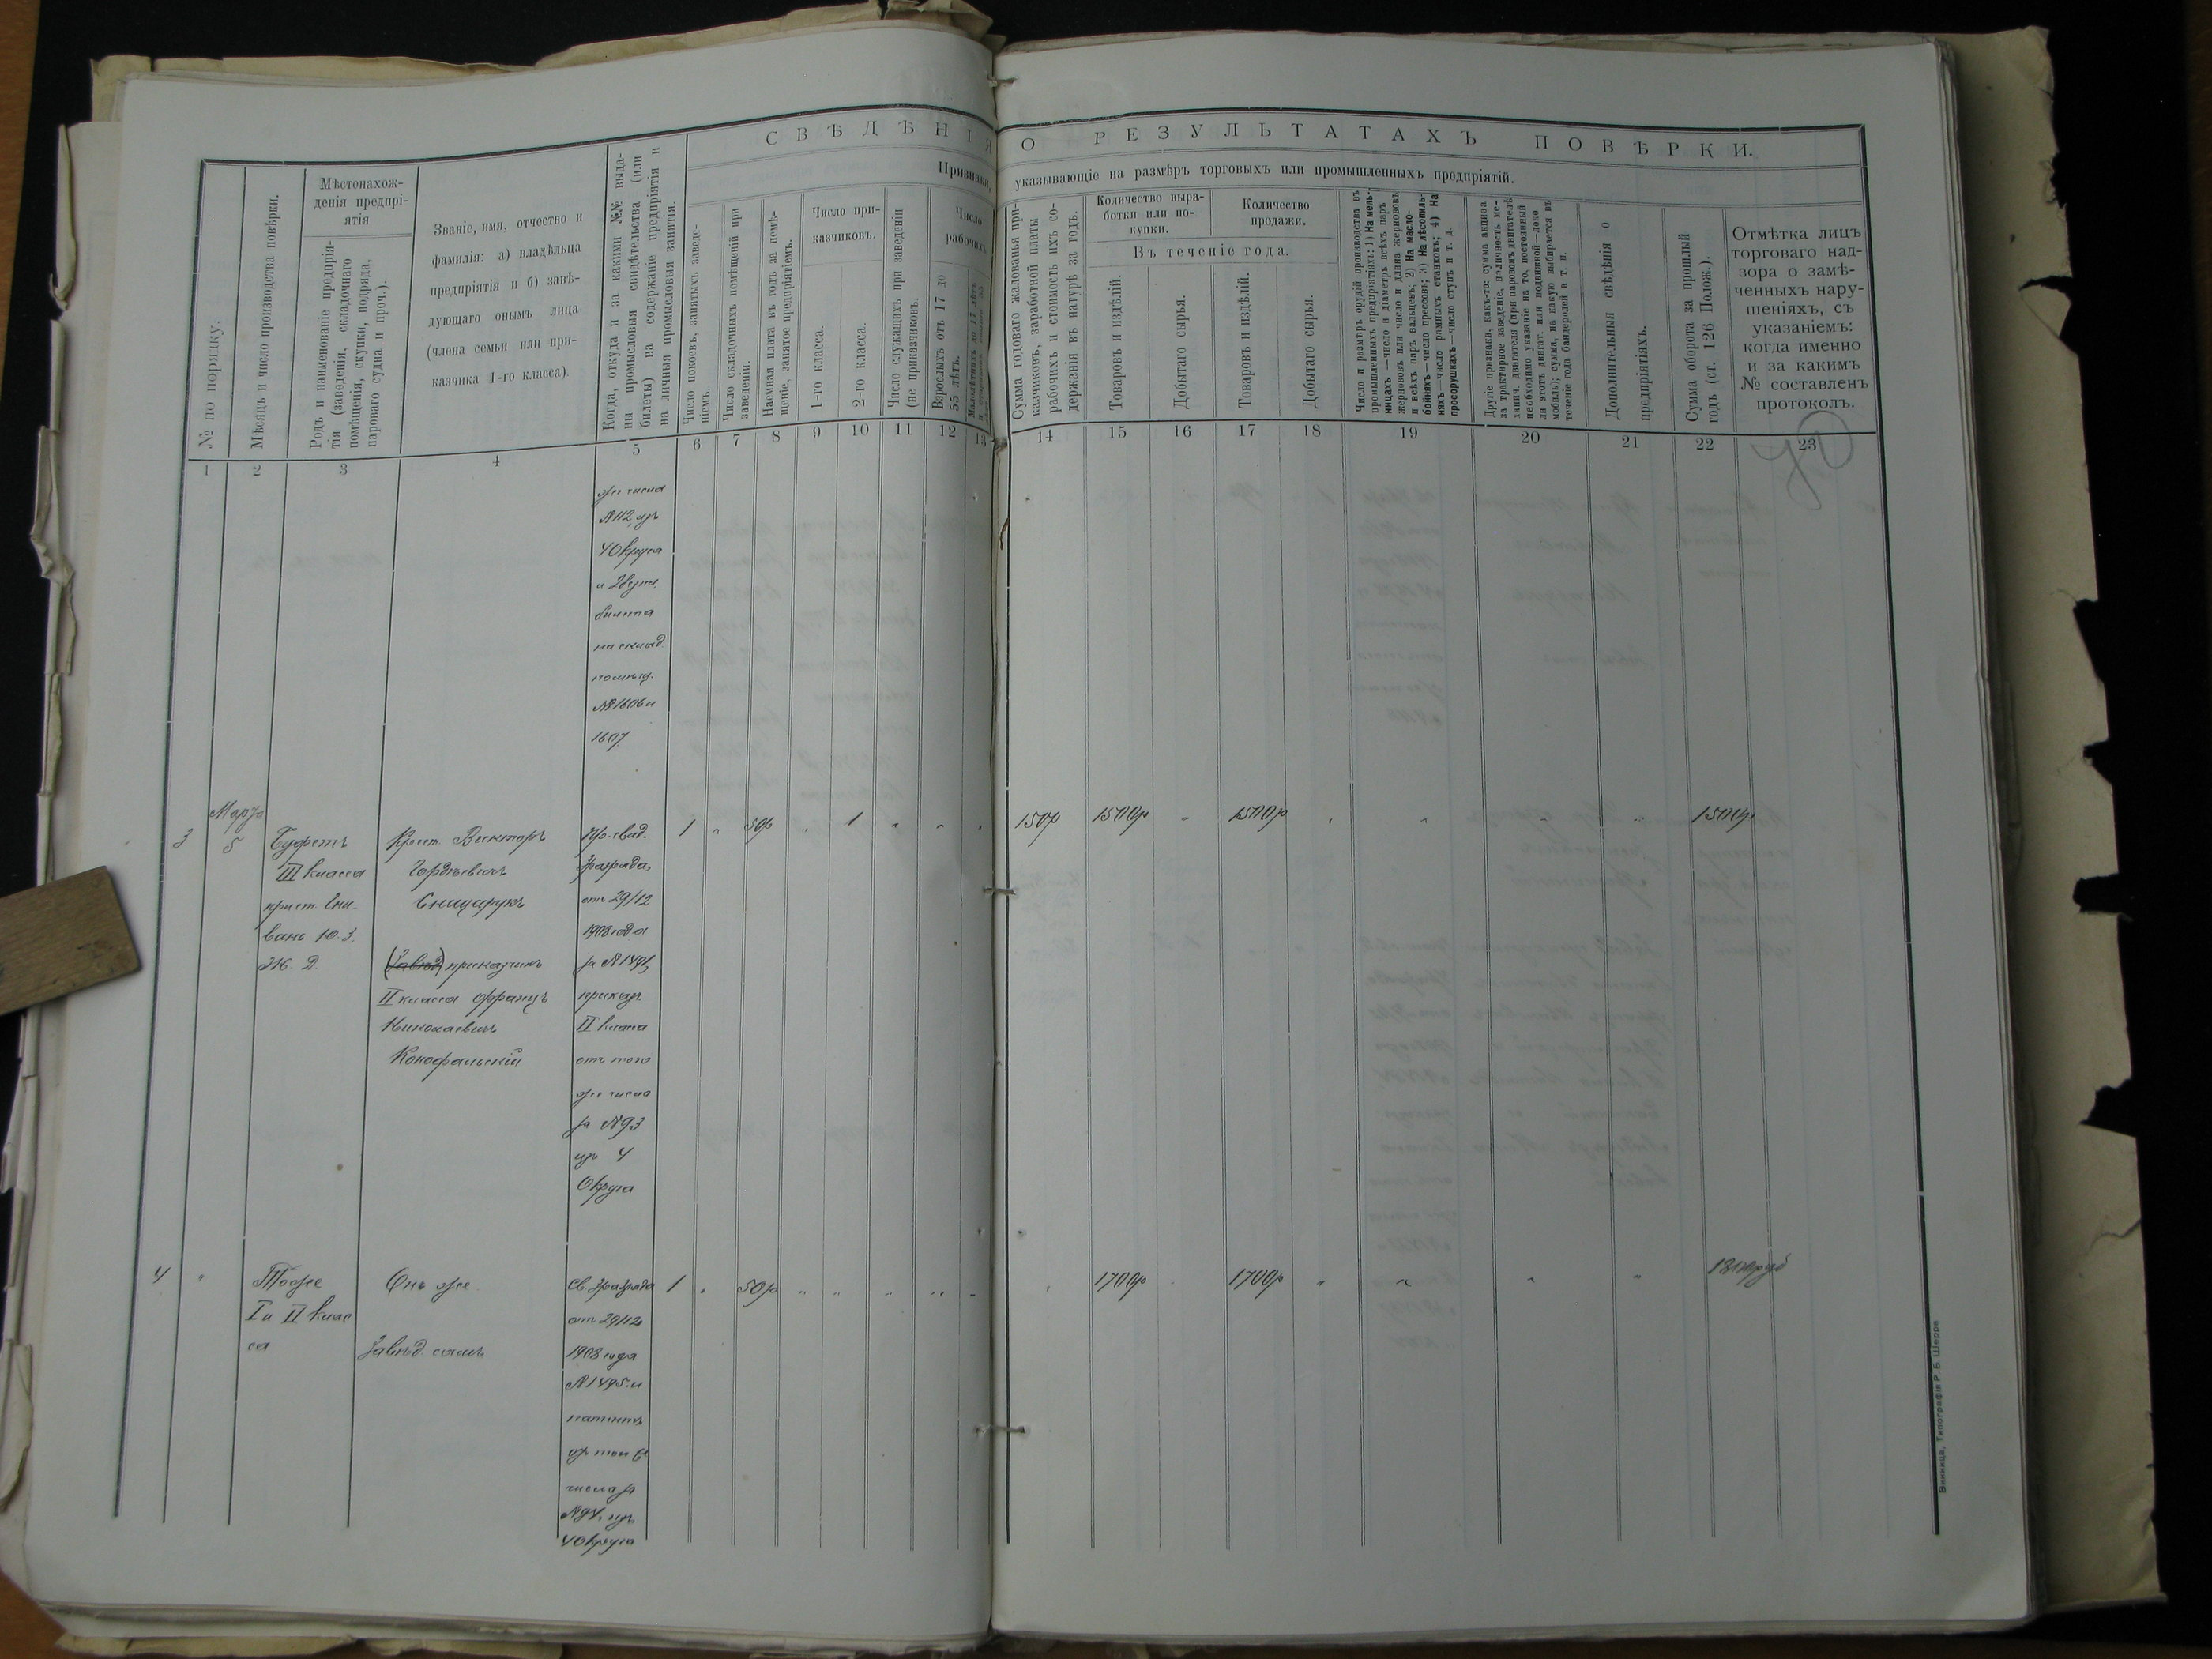 СВѢДѢНІЯ О РЕЗУЛЬТАТАХЪ ПОВѢРКИ.
Признаки, указывающіе на размѣръ торговыхъ или промышленныхъ предпріятій.
№ по порядку.
Мѣсяцъ и число производства повѣрки.
Мѣстонахож-
денія предпрі-
ятія
Родъ и наименованіе предпрія-
тія (заведенія, складочнаго
помѣщенія, скупки, подряда,
пароваго судна и проч.).
Званіе, имя, отчество и
фамилія: а) владѣльца
предпріятія и б) завѣ-
дующаго онымъ лица
(члена семьи или при-
казчика 1-го класса).
Когда, откуда и за какими №№ выда-
ны промысловыя свидѣтельства (или
билеты) на содержаніе предпріятія и
на личныя промысловыя занятія.
Число покоевъ, занятыхъ заведе-
ніемъ.
Число складочныхъ помѣщеній при
заведеніи.
Наемная плата въ годъ за помѣ-
щеніе, занятое предпріятіемъ.
Число при-
казчиковъ.
1-го класса.
2-го класса.
Число служащихъ при заведеніи
(не приказчиковъ).
Число
рабочихъ.
Взрослыхъ отъ 17 до
55 лѣтъ.
Малолѣтнихъ до 17 лѣтъ
Сумма годоваго жалованья при-
казчиковъ, заработной платы
рабочихъ и стоимость ихъ со-
держанія въ натурѣ за годъ.
Количество выра-
ботки или по-
купки.
Количество
продажи.
Въ теченіе года.
Товаровъ и издѣлій.
Добытаго сырья.
Товаровъ и издѣлій.
Добытаго сырья.
Число и размѣръ орудій производства въ
промышленныхъ предпріятіяхъ: 1) На мель-
ницахъ—число и діаметръ всѣхъ паръ
жернововъ или число и длина жернововъ
и всѣхъ паръ вальцевъ; 2) На масло-
бойняхъ—число прессовъ; 3) На лѣсопиль-
няхъ—число рамныхъ станковъ; 4) На
просорушкахъ—число ступъ и т. д.
Другіе признаки, какъ-то: сумма акциза
за трактирное заведеніе, наличность ме-
ханич. двигателя (при паровомъ двигателѣ
необходимо указаніе на то, постоянный
ли этотъ двигат. или подвижной—локо
мобиль); сумма, на какую выбирается въ
теченіе года бандеролей и т. п.
Дополнительныя свѣдѣнія о
предпріятіяхъ.
Сумма оборота за прошлый
годъ (ст. 126 Полож.).
Отмѣтка лицъ
торговаго над-
зора о замѣ-
ченныхъ нару-
шеніяхъ, съ
указаніемъ:
когда именно
и за какимъ
№ составленъ
протоколъ.
1 2 3 4 5 6 7 8 9 10 11 12 13 14 15 16 17 18 19 20 21 22 23
же числа
№112, изъ
4 Округа
и 2 безпл.
билета
на склад.
помѣщ.
№1606 и
1607.
3
Марта
5
Буфетъ
III класса
при ст. Гни-
вань Ю. З.
Ж. Д.
Крест. Викторъ
Гордѣевичъ
Снищрукъ
(Завѣд) приказчикъ
II класса Францъ
Николаевичъ
Конофальскій
Пр. свид.
3 разряда,
отъ 29/12
1908 года
за №1491,
приказ.
II класса
отъ того
же числа
за №93
изъ 4
Округа
1 " 50р " 1 " " " 150р. 1500р - 1500р " " " " 1500р
4
"
Тоже
I и II клас
са
Онъ же
Завѣд. самъ
Св. 3 разряда
отъ 29/12
1908 года
№1495 и
числа за
№94, изъ
4 Округа
1 " 50р " " " " " 1700р 1700р " " " "
Винница, Типографія Р. Б. Шерра